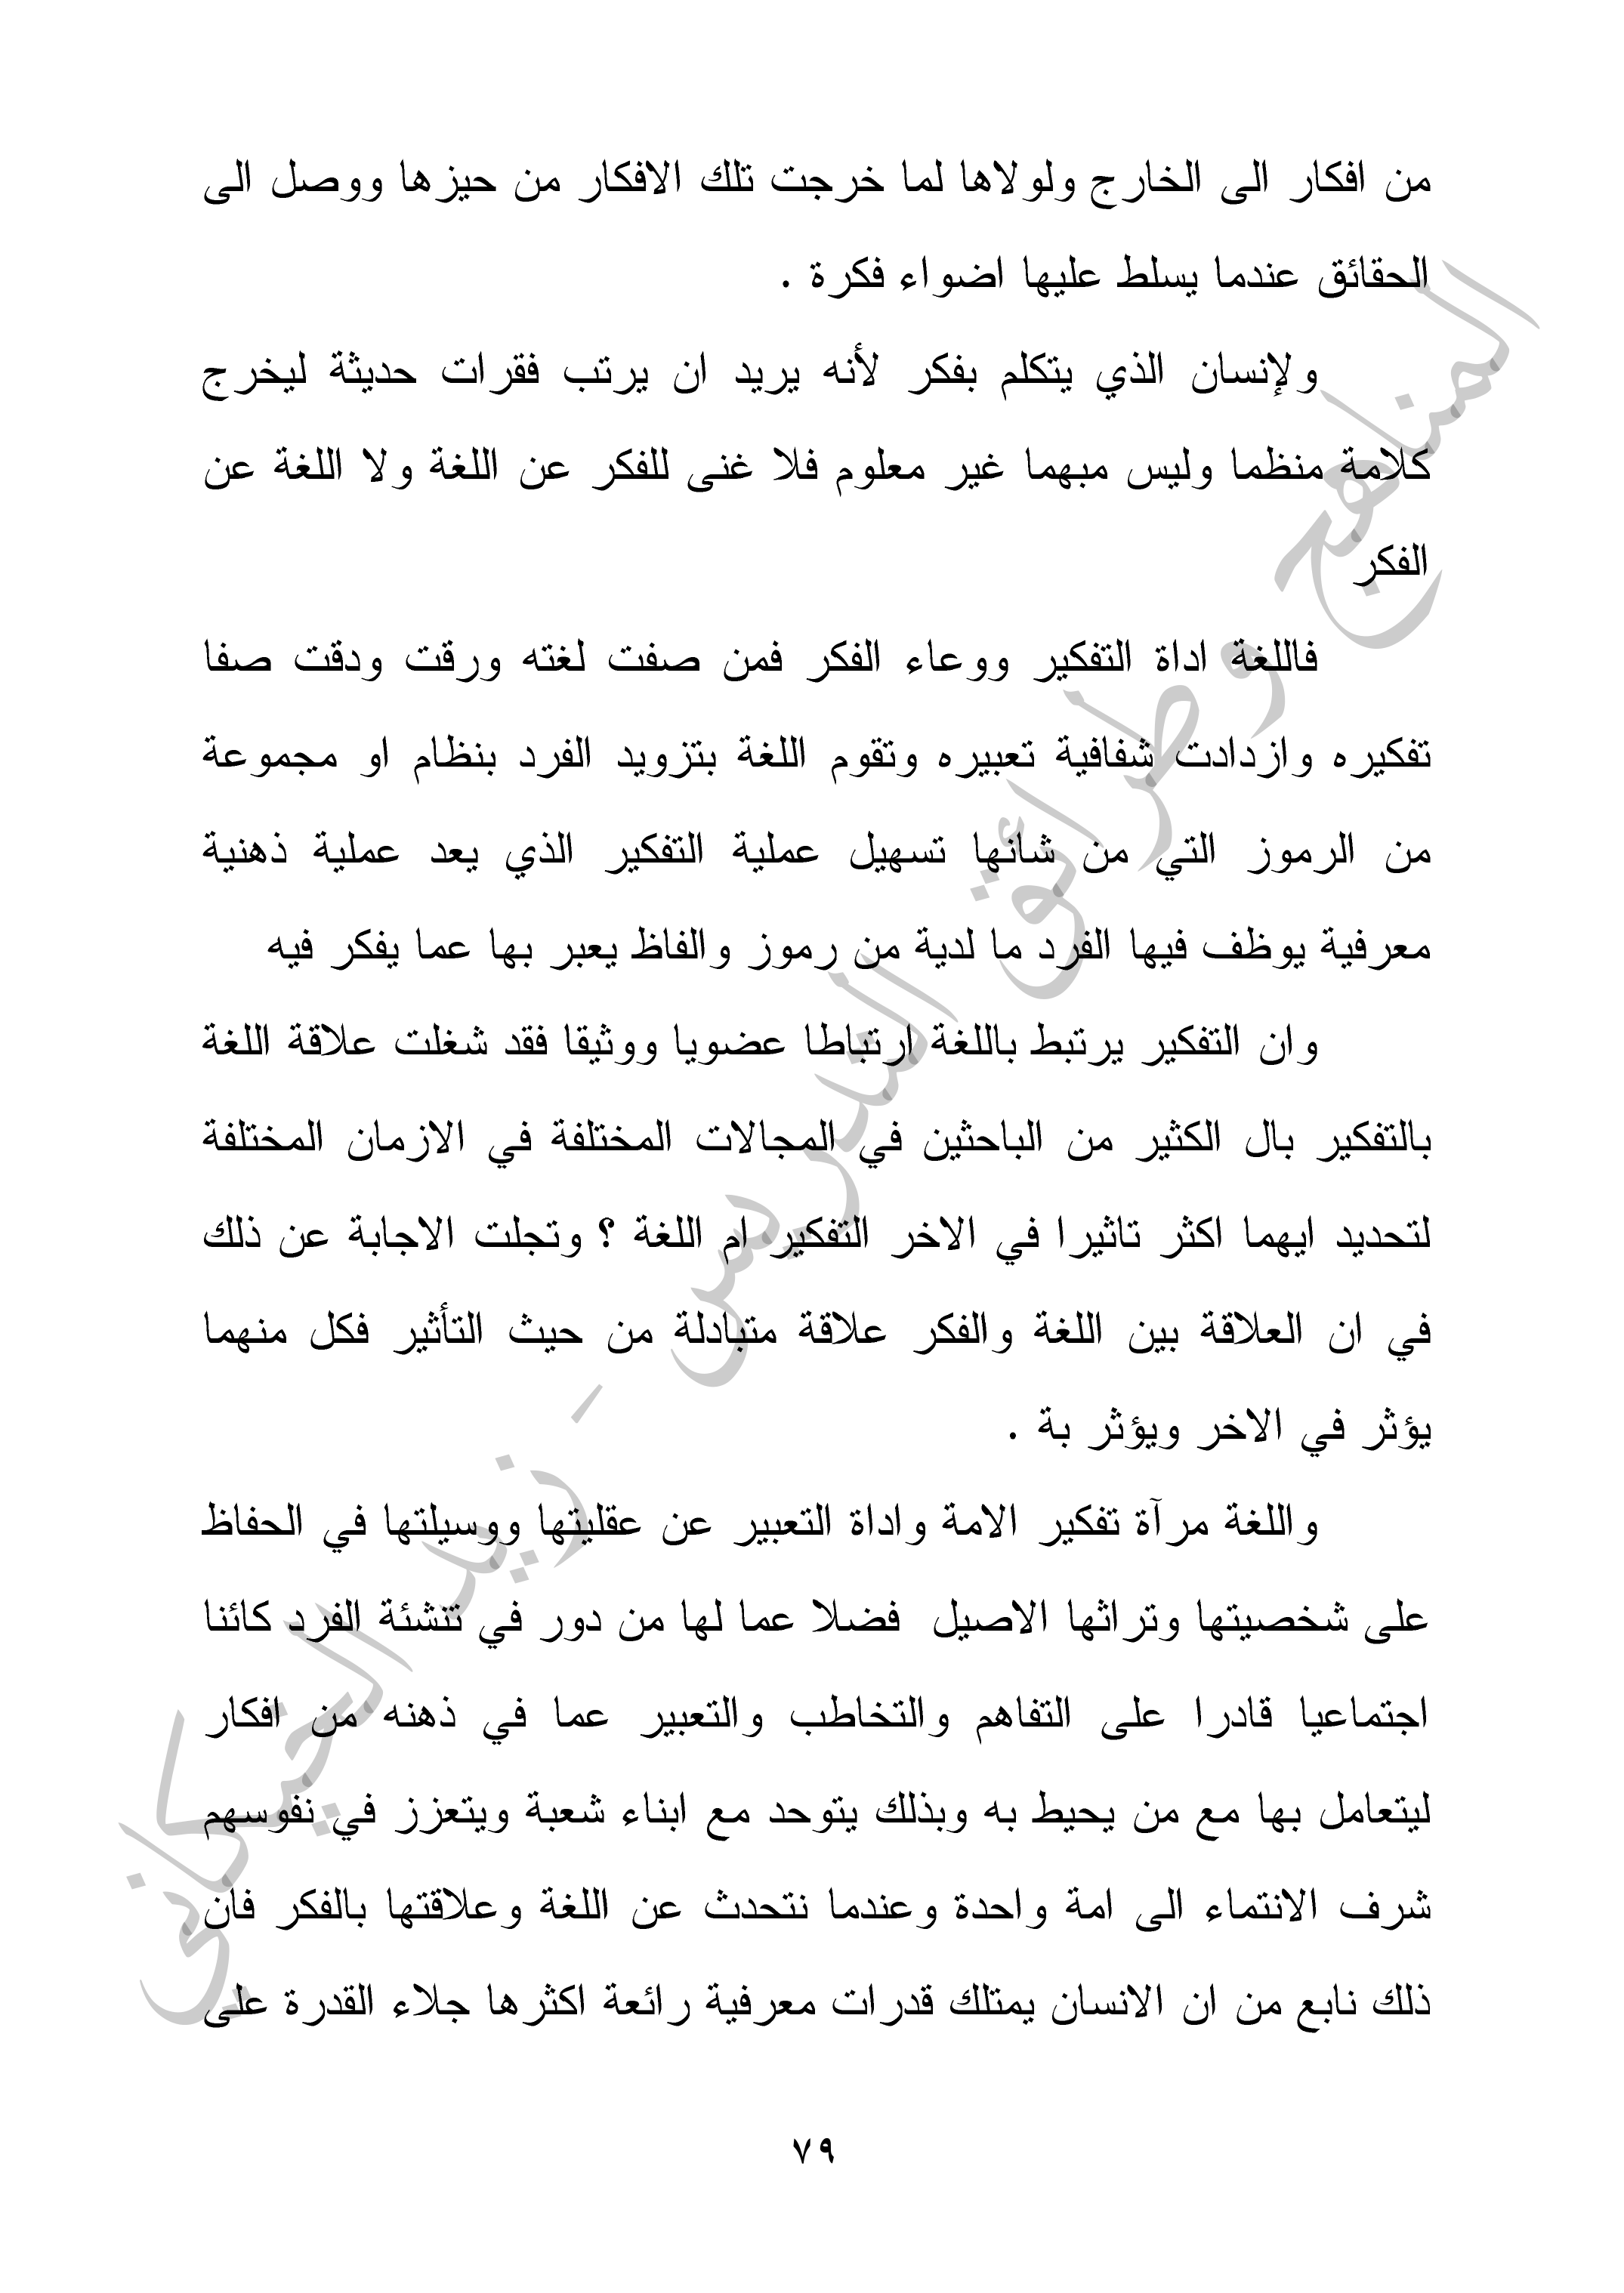 من افكار الى الخارج ولولاها لما خرجت تلك الافكار من حيزها ووصل الى
الحقائق عندما يسلط عليها اضواء فكرة .
ولإنسان الذي يتكلم بفكر لأنه يريد ان يرتب فقرات حديثة ليخرج
كلامة منظما وليس مبهما غير معلوم فلا غنى للفكر عن اللغة ولا اللغة عن
الفكر
فاللغة اداة التفكير ووعاء الفكر فمن صفت لغته ورقت ودقت صفا
تفكيره وازدادت شفافية تعبيره وتقوم اللغة بتزويد الفرد بنظام او مجموعة
من الرموز التي من شانها تسهيل عملية التفكير الذي يعد عملية ذهنية
معرفية يوظف فيها الفرد ما لدية من رموز والفاظ يعبر بها عما يفكر فيه
وان التفكير يرتبط باللغة ارتباطا عضويا ووثيقا فقد شغلت علاقة اللغة
بالتفكير بال الكثير من الباحثين في المجالات المختلفة في الازمان المختلفة
لتحديد ايهما اكثر تاثيرا في الاخر التفكير ام اللغة ؟ وتجلت الاجابة عن ذلك
في ان العلاقة بين اللغة والفكر علاقة متبادلة من حيث التأثير فكل منهما
يؤثر في الاخر ويؤثر بة .
واللغة مرآة تفكير الامة واداة التعبير عن عقليتها ووسيلتها في الحفاظ
على شخصيتها وتراثها الاصيل فضلا عما لها من دور في تنشئة الفرد كائنا
اجتماعيا قادرا على التفاهم والتخاطب والتعبير عما في ذهنه من افكار
ليتعامل بها مع من يحيط به وبذلك يتوحد مع ابناء شعبة ويتعزز في نفوسهم
شرف الانتماء الى امة واحدة وعندما نتحدث عن اللغة وعلاقتها بالفكر فان
ذلك نابع من ان الانسان يمتلك قدرات معرفية رائعة اكثرها جلاء القدرة على
٧٩
المناهج وطرائق التدريس - زيد الخيكاني